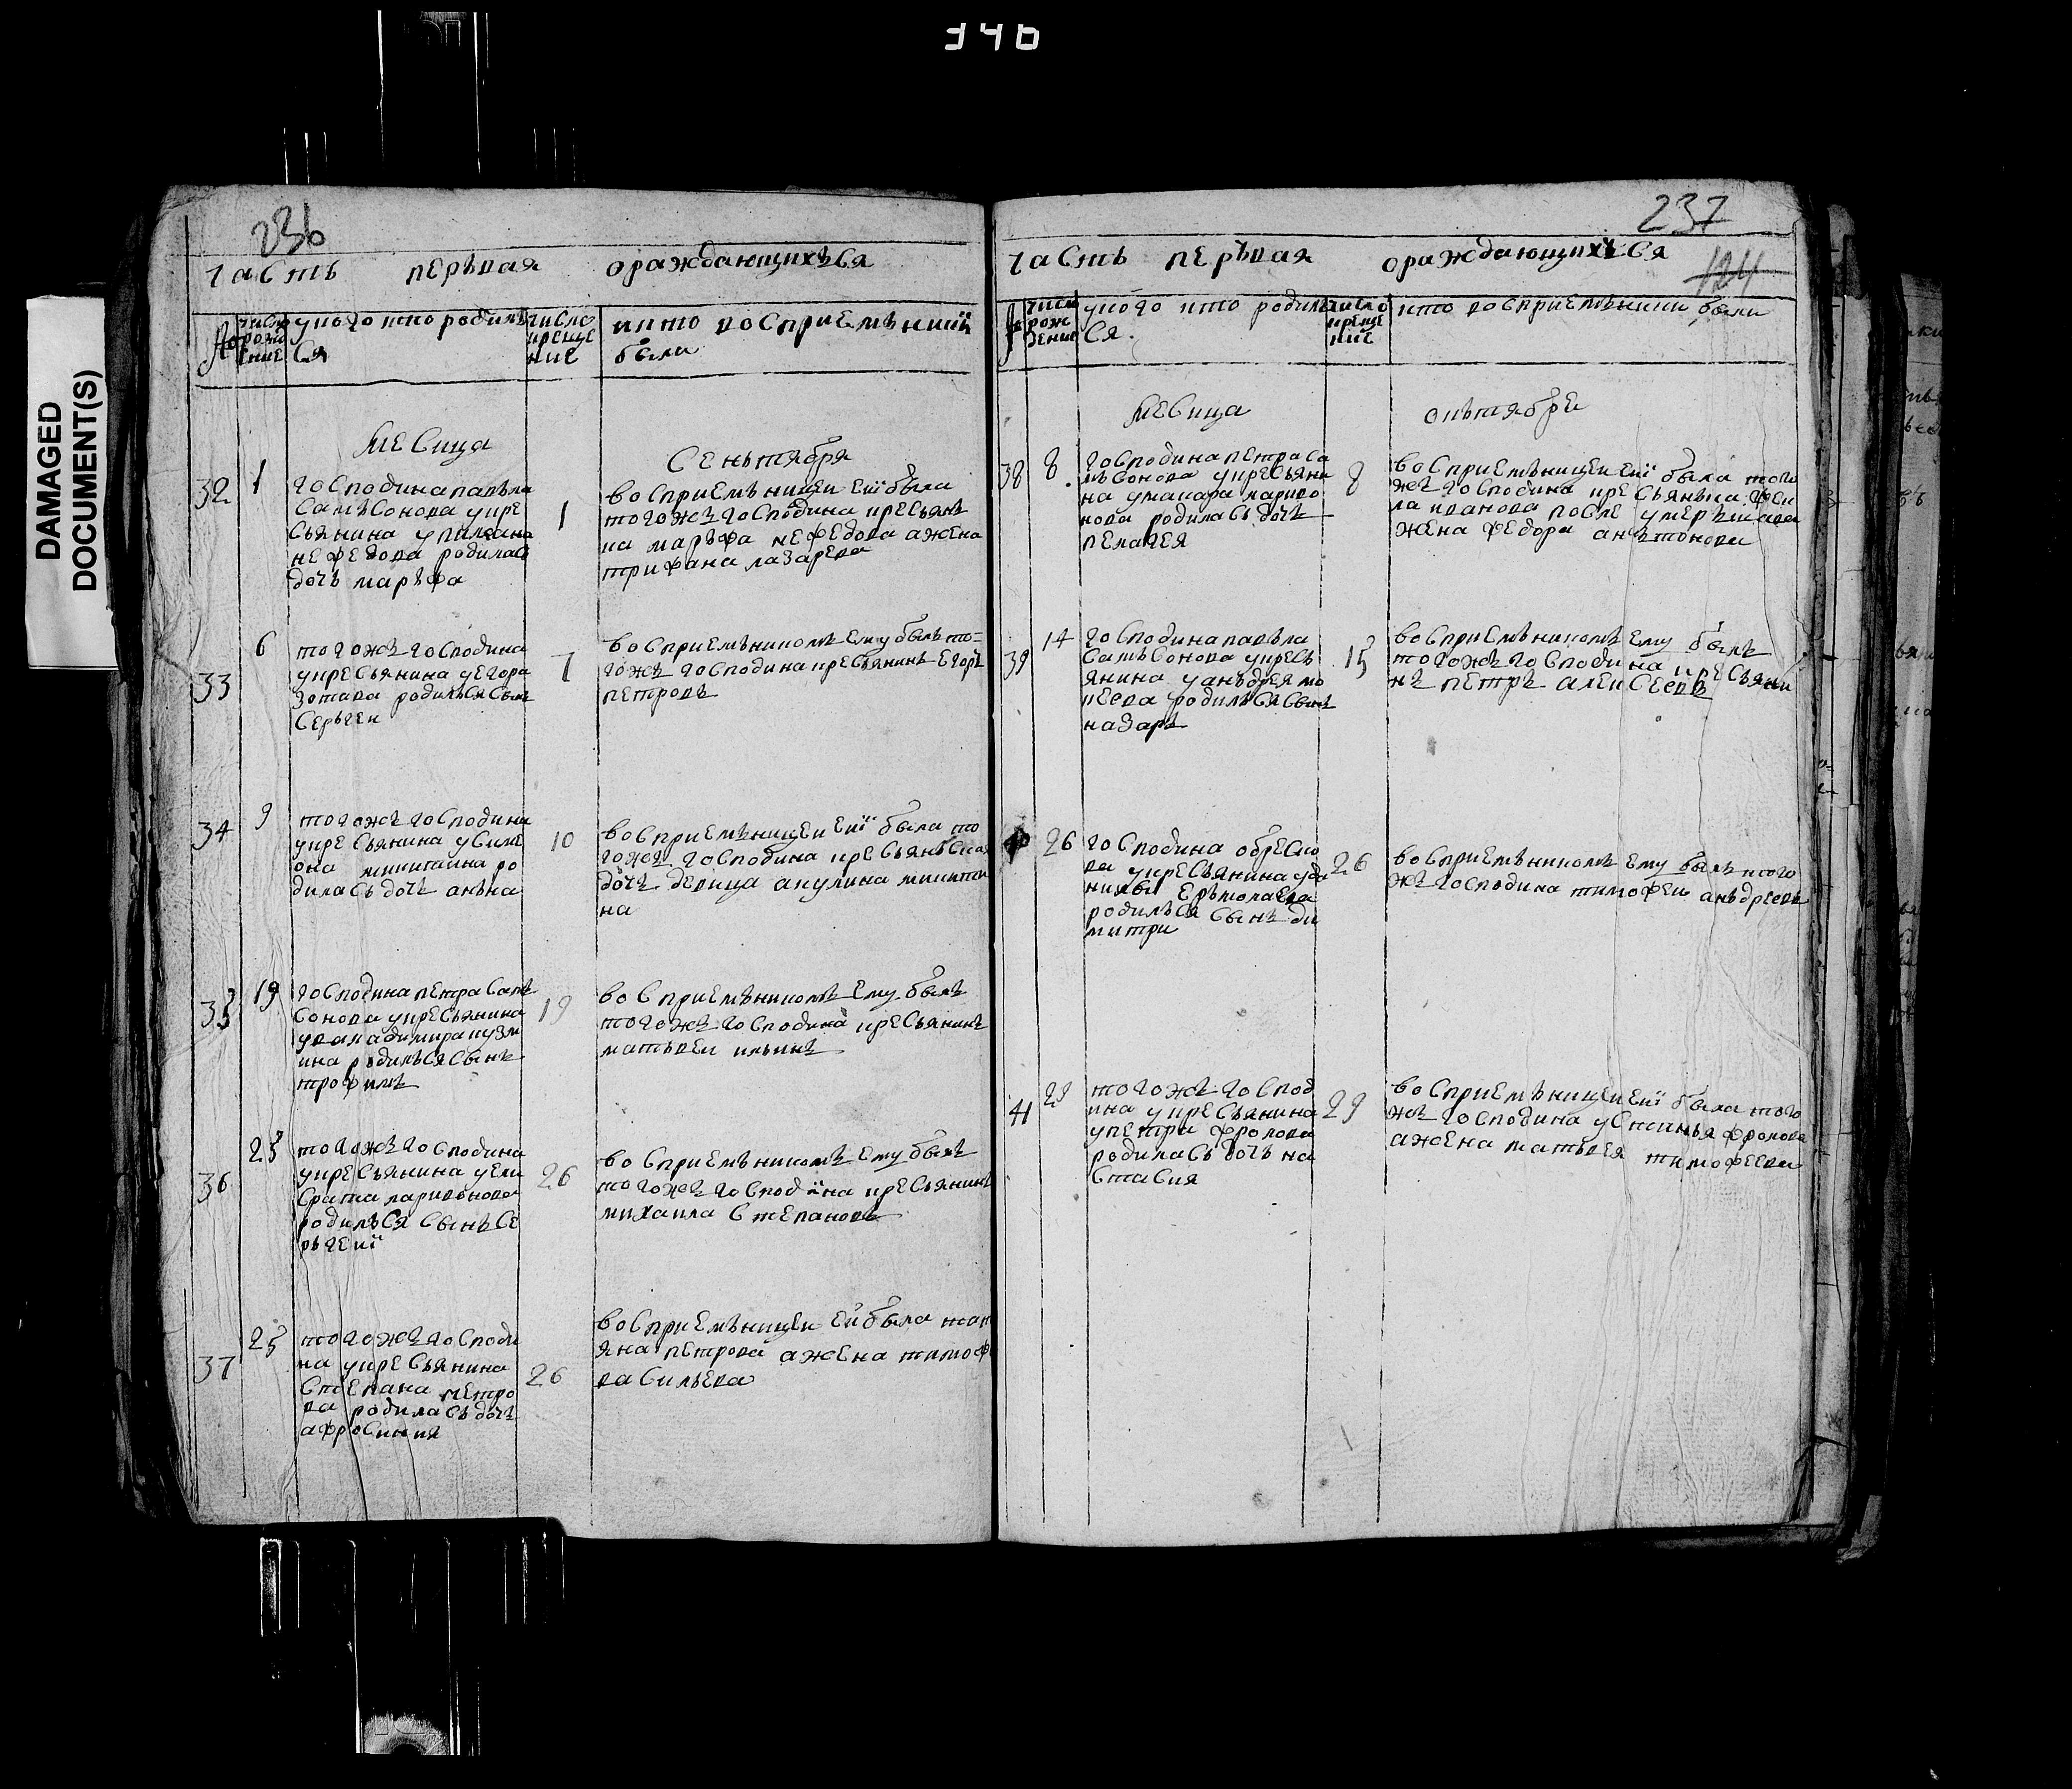 340
DAMAGED
DOCUMENT(S)
236
часть перьвая ораждающихъся
№
число рожд ение
укого кто родилъ
ся
число
креще
ние
икто восприемъники
были
месица сеньтября
32 1
господина павьла
Самъсонова укре
сьянина
нефедова родилас
дочь марьфа
1
восприемъницеи еи была
тогожъ господина кресьянъ
ка марьфа нефедова ажена
трифана лазарева
33 6
тогожъ господина
укресьянина уегора
зотава родилься сынъ
Серьгеи
7
восприемъникомъ ему былъ то=
гожъ господина кресьянинъ Егоръ
петровъ
34 9
тогожъ господина
укресьянина усиме
она микитаина ро
диласъ дочъ анъна
10
восприемъницеи еи была то
гожъ господина кресьянъская
дочъ девица акулина микити
на
35 19
господина петра самъ
сонова укресьянина
увладимира кузм
ина родилься сынъ
трофимъ
19
восприемъникомъ ему былъ
тогожъ господина кресьянинъ
матьвеи ильинъ
36 25
тогожъ господина
укресьянина уели
срата ларивонова
родилься сынъ се
рьгеи
26
восприемъникомъ ему былъ
тогожъ господина кресьянинъ
михаила степановъ
37 25
тогожъ господи
на укресьянина
степана петро
ва родиласъ дочъ
афросиния
26
восприемъницеи еи была
яна петрова ажена тимоф
васильева
237
124
часть перьвая ораждающихъся
№
число
рож
дение
укого кто родилъ
ся.
число
креще
ние
кто восприемъники были
месица октябре
38 8.
господина петра са
мъсонова укресьяни
на умакара ларио
нова родиласъ дочъ
пелагея
8
восприемъницеи еи была того
жъ господина кресьянъка феки
ла иванова после умеръшава
жена федора анътонова
39 14
господина павьла
самъсонова укресь
янина уанъдрея мо
кеева родилься сынъ
назаръ
15
восприемъникомъ ему былъ
тогожъ господина кресьяни
нъ петръ алексеевъ
40 26
господина обреско
ва укресьянина уда
нилы еръмолаева
родилься сынъ ди
митри
26
восприемъникомъ ему былъ того
жъ господина тимофеи анъдреевъ
41 29
тогожъ господ
ина укресьянина
упетра фролова
родиласъ дочъ на
стасия
29
восприемъницеи еи была того
жъ господина устинья фролова
ажена матьвея тимофеева